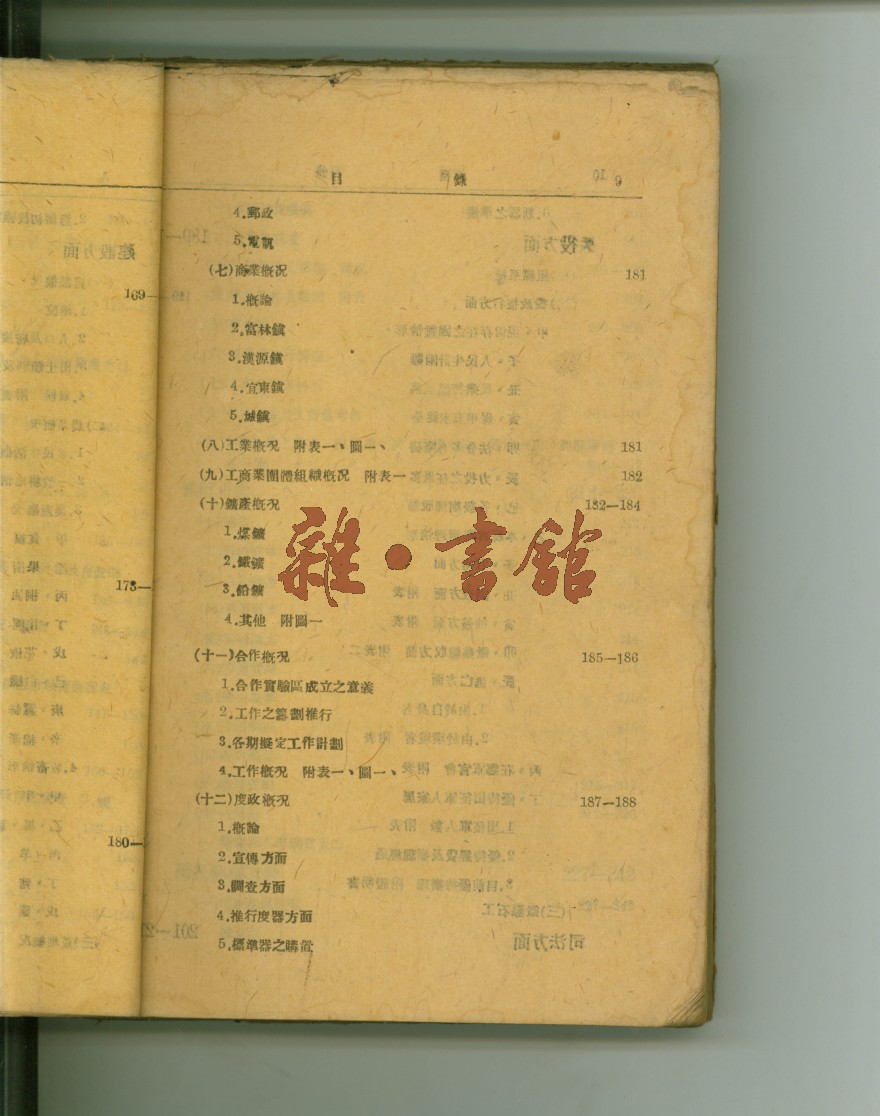 目 錄 9
4.郵政
5.電訊
(七)商業概況 181
1.概論
2.富林鎮
3.漢源鎮
4.宜東鎮
5.城鎮
(八)工業概況 附表一、圖一、 181
(九)工商業團體組織概況 附表一 182
(十)鑛產概況 182—184
1.煤鑛
2.鐵鑛
3.鉛鑛
4.其他 附圖一
(十一)合作概況 185—186
1.合作實驗區成立之意義
2.工作之籌劃推行
3.各期擬定工作計劃
4.工作概況 附表一、圖一、
(十二)度政概況 187—188
1.概論
2.宣傳方面
3.調查方面
4.推行度器方面
5.標準器之購置
169—
173—
180—
雜·書館